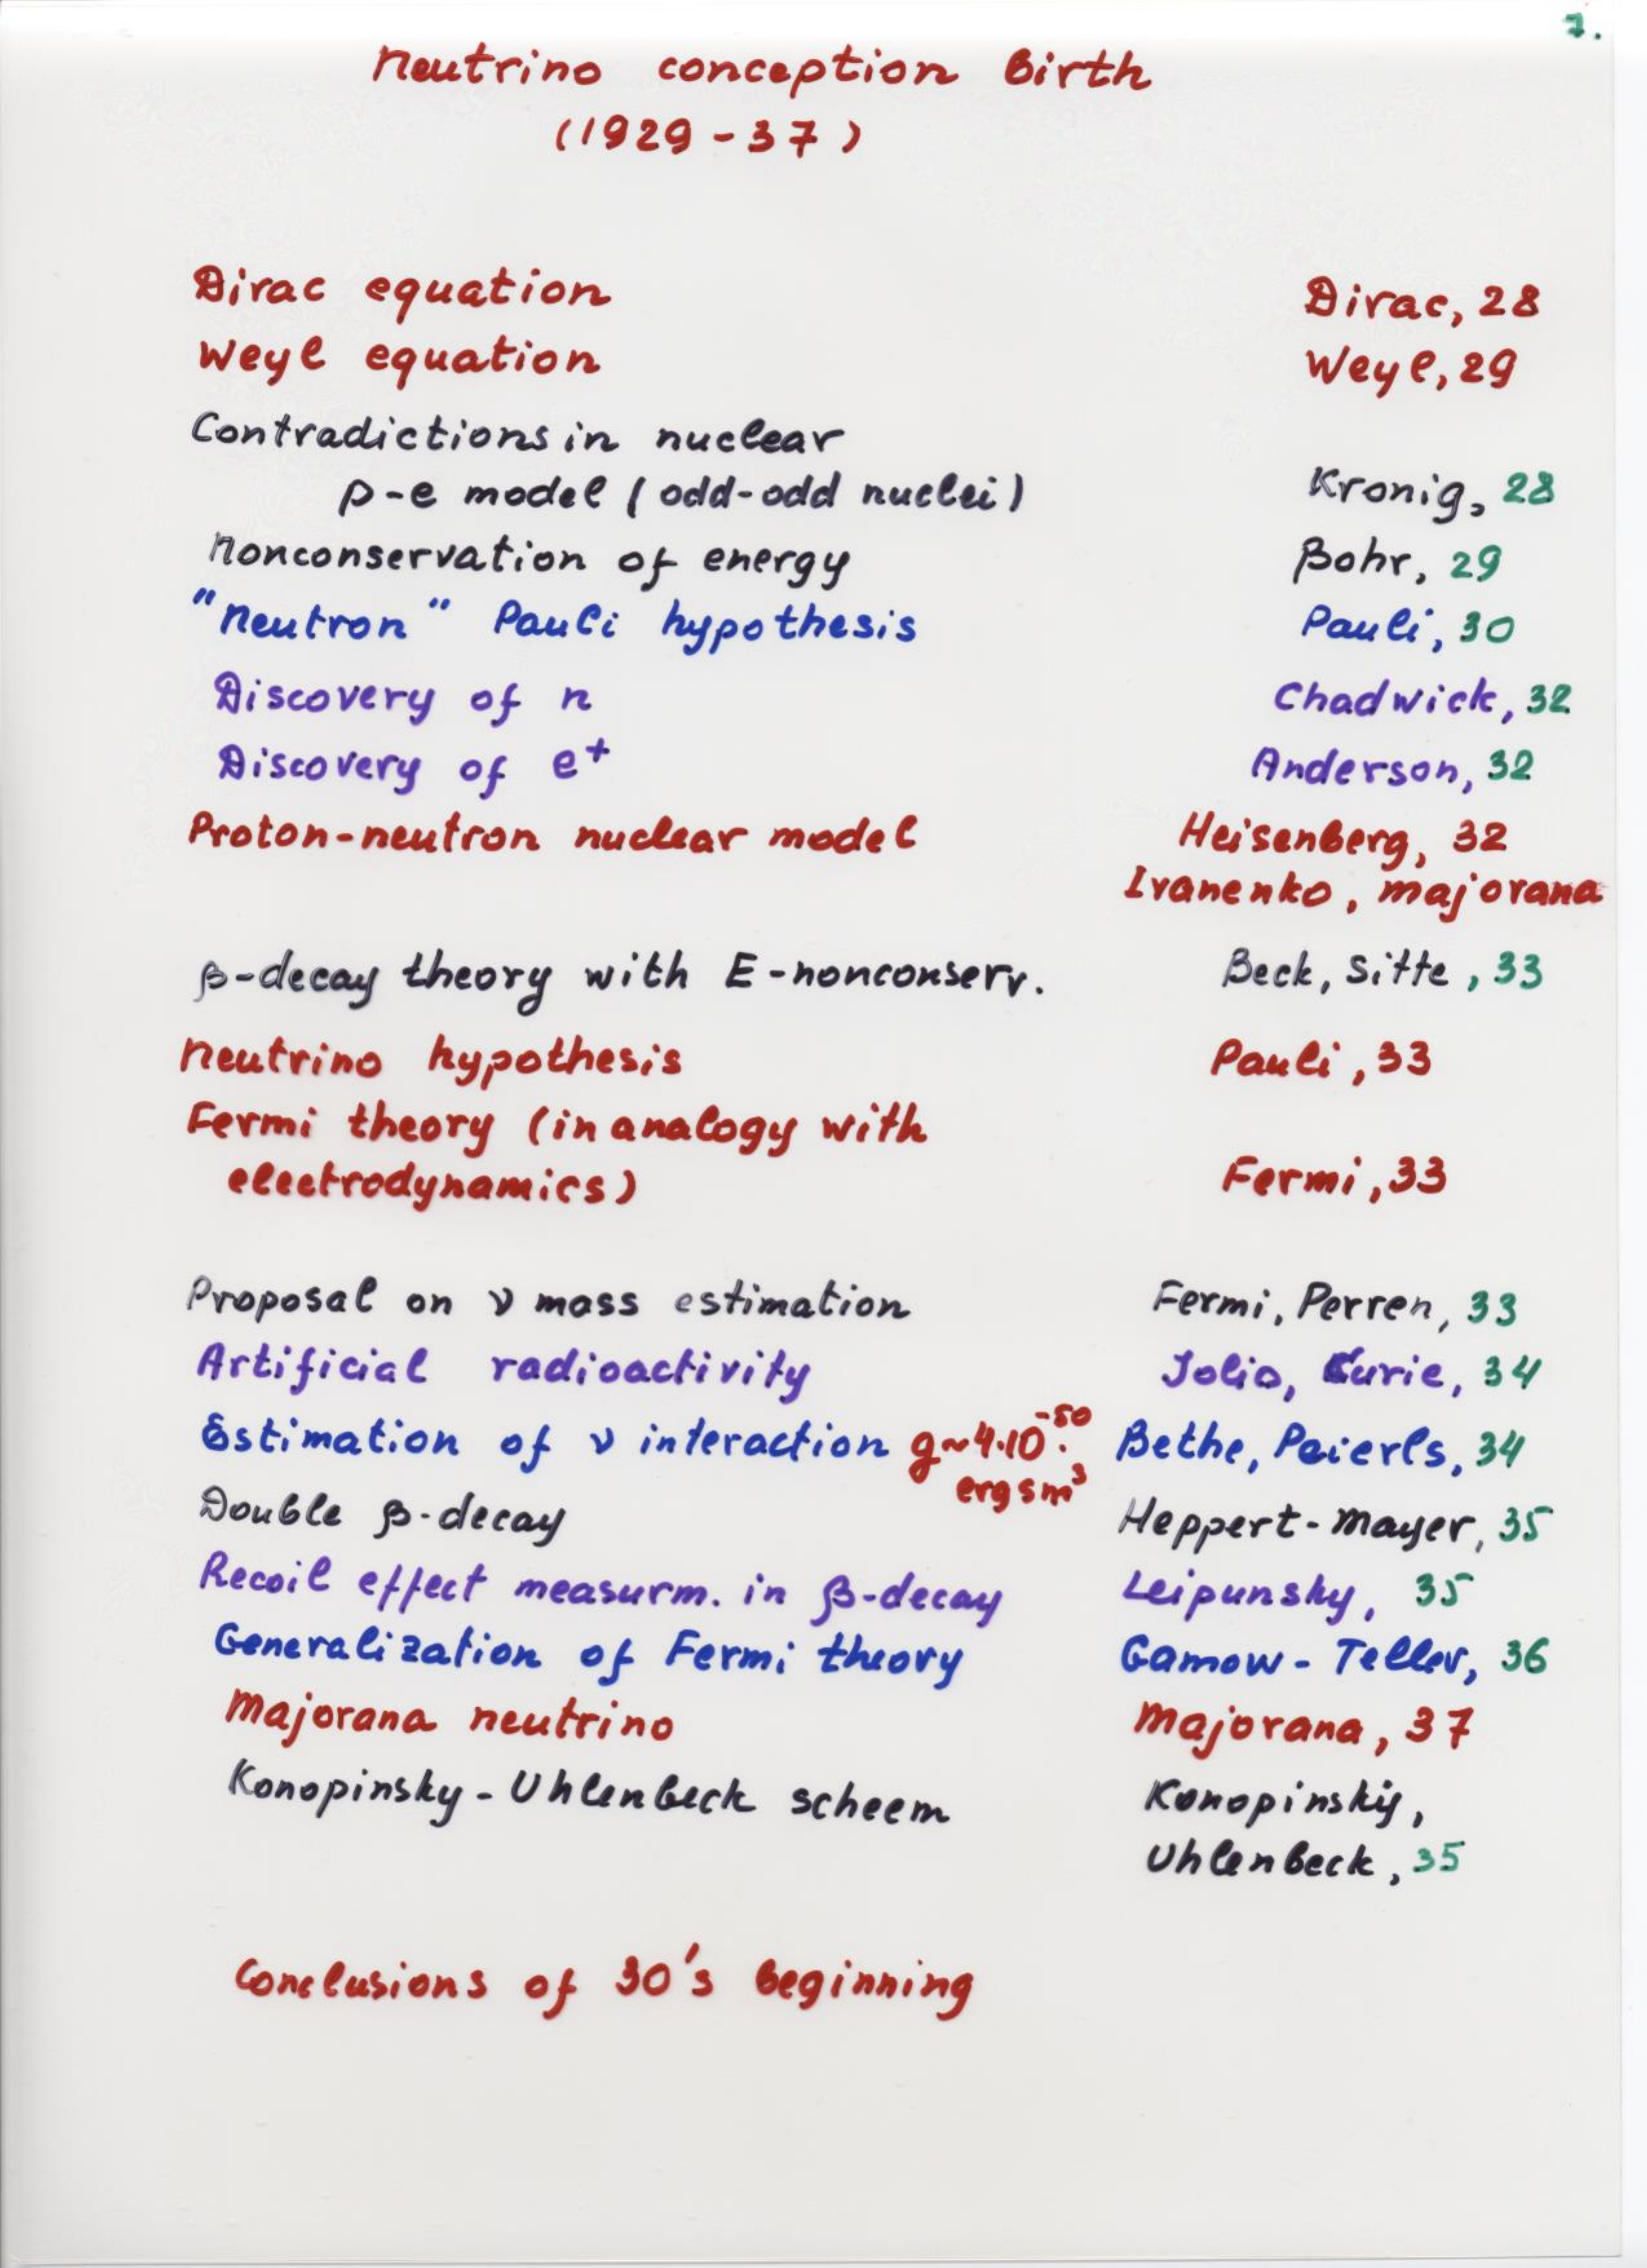 7.
Neutrino conception birth
(1929-37)
Dirac equation Dirac, 28
Weyl equation Weyl, 29
Contradictions in nuclear
p-e model (odd-odd nuclei) Kronig, 28
Nonconservation of energy Bohr, 29
"Neutron" Pauli hypothesis Pauli, 30
Discovery of n Chadwick, 32
Discovery of e⁺ Anderson, 32
Proton-neutron nuclear model Heisenberg, 32
Ivanenko, Majorana
β-decay theory with E-nonconserv. Beck, Sitte, 33
Neutrino hypothesis Pauli, 33
Fermi theory (in analogy with
electrodynamics) Fermi, 33
Proposal on ν mass estimation Fermi, Perren, 33
Artificial radioactivity Jolio, Curie, 34
Estimation of ν interaction g~4·10⁻⁵⁰· Bethe, Peierls, 34
erg sm³
Double β-decay Heppert-Mayer, 35
Recoil effect measurm. in β-decay Leipunsky, 35
Generalization of Fermi theory Gamow-Teller, 36
Majorana neutrino Majorana, 37
Konopinsky-Uhlenbeck scheem Konopinskij,
Uhlenbeck, 35
Conclusions of 30's beginning